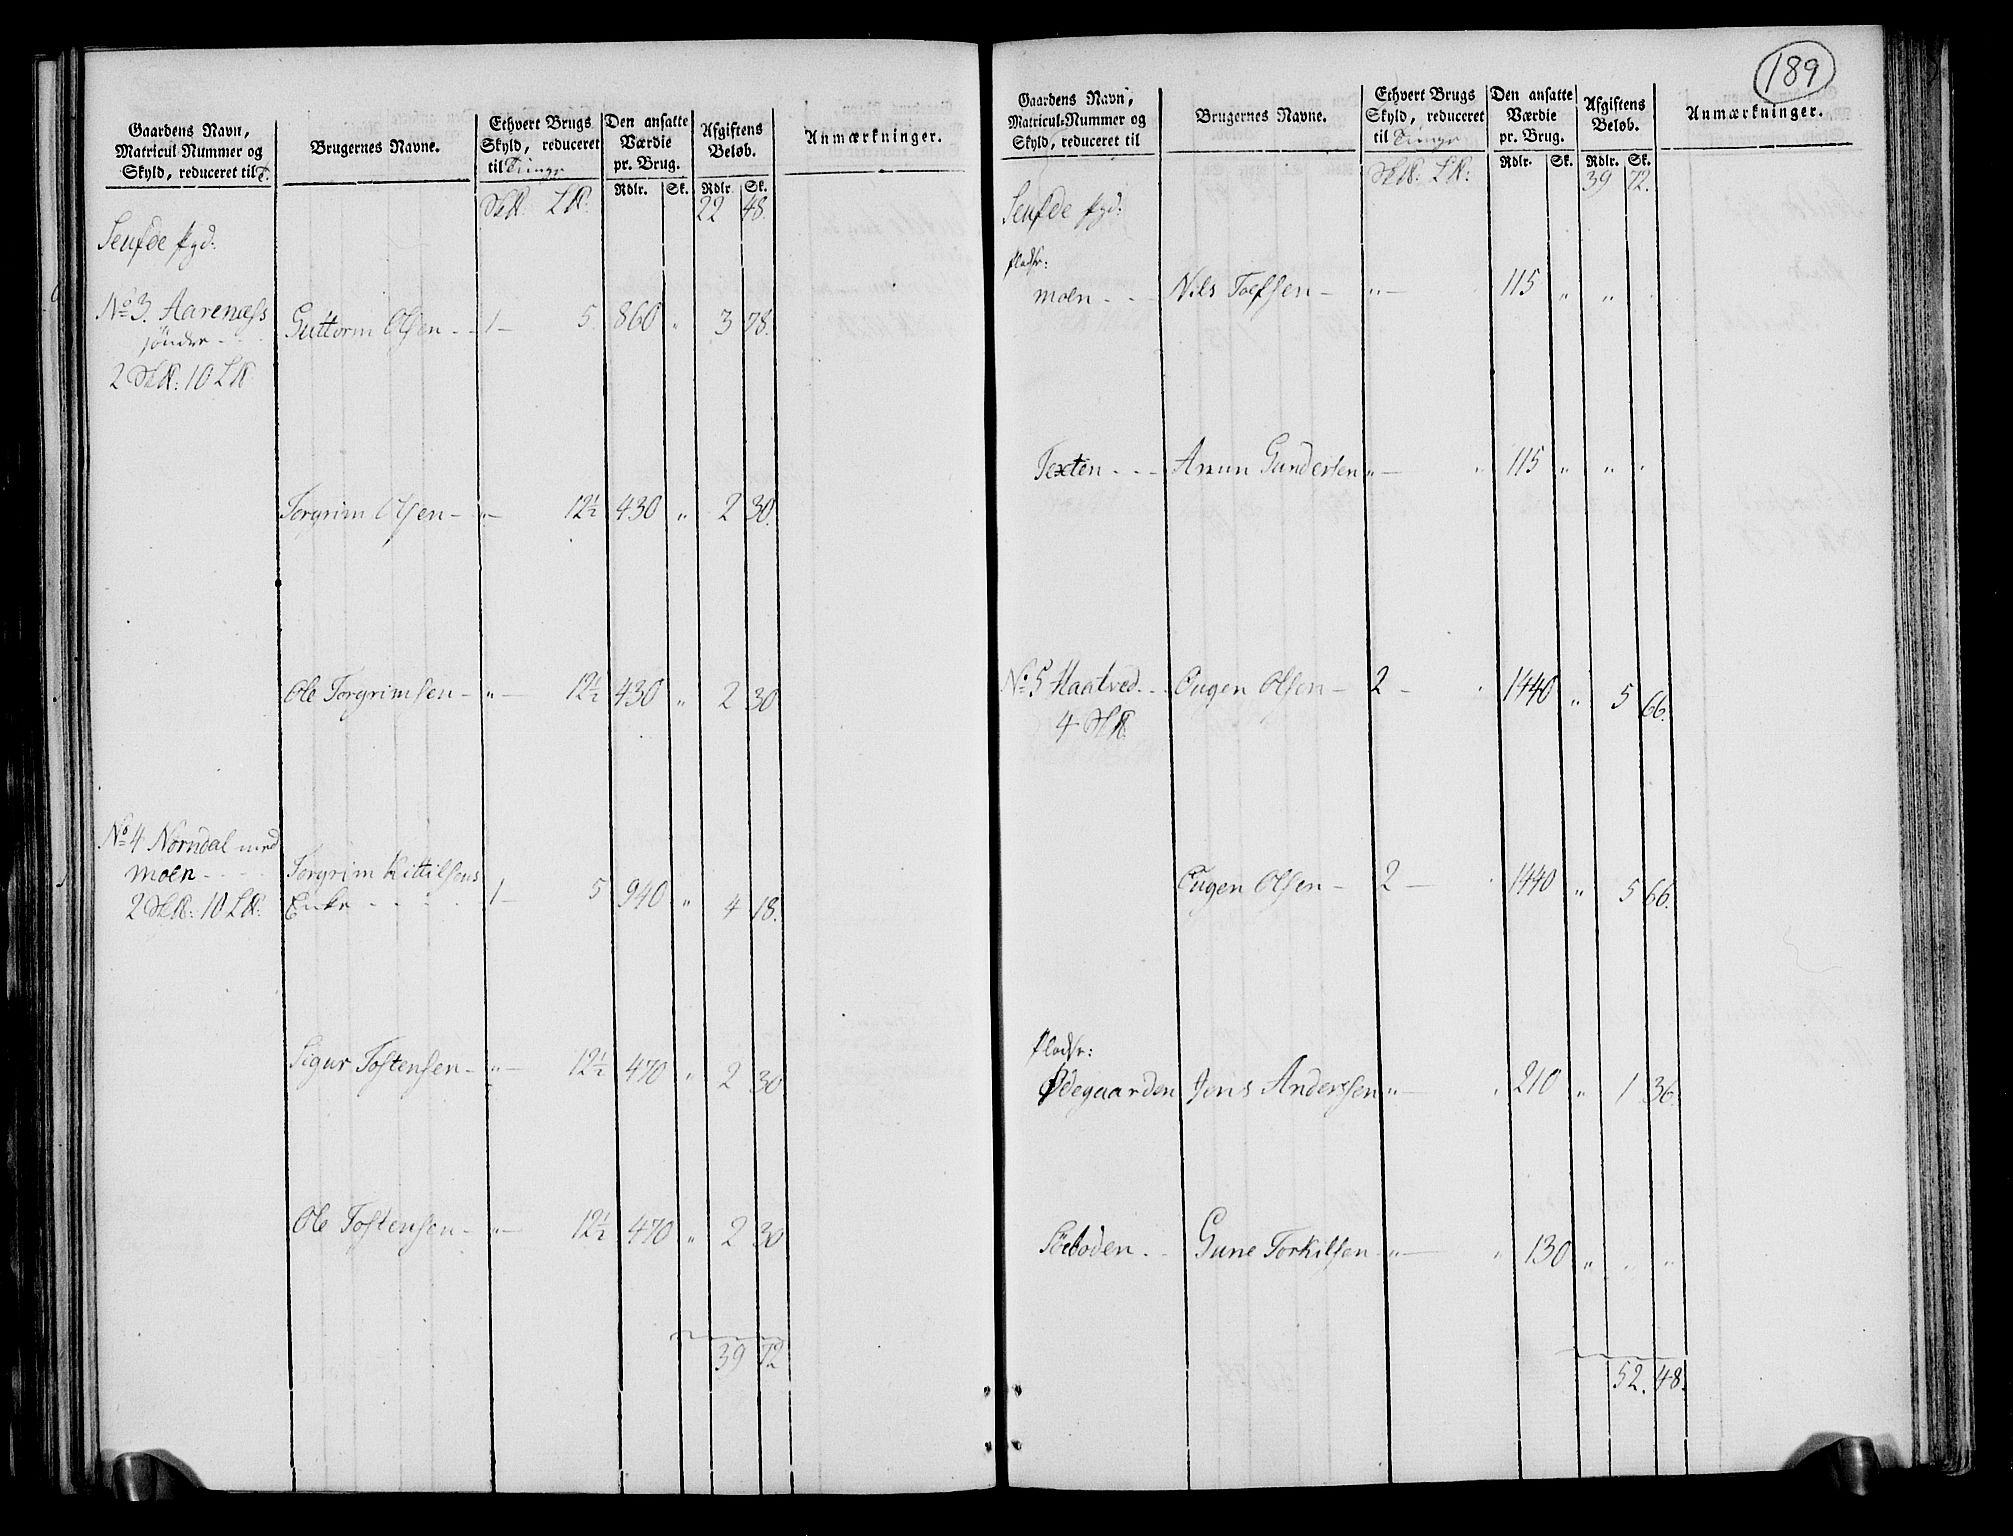 Gaardens Navn,
Matricul-Nummer og
Skyld, reduceret til T.
Brugernes Navne.
Ethvert Brugs
Skyld, reduceret
til Tunge
Den ansatte
Værdie
pr. Brug.
Afgiftens
Beløb.
Anmærkninger.
Rdlr. Sk. Rdlr Sk.
22 48.
No 3. Aarenæss Guttorm Olsen - - 1 - 5. 860 " 3 78.
søndre - -
2 10
Torgrim Olsen - " - 12½ 430 " 2 30.
Ole Torgrimsen - " - 12½ 430 " 2 30
No 4 Norndal med
moen - - - Torgrim Kittilsens
2 10 Enke - - - 1 - 5 940 " 4 18.
Sigur Tostensen - " - 12½ 470 " 2 30
Ole Tostensen - " - 12½ 470 " 2 30
39 72
189
Gaardens Navn,
Matricul-Nummer og
Skyld, reduceret til
Brugernes Navne.
Ethvert Brugs
Skyld, reduceret
til Tunge
Den ansatte
Værdie
pr. Brug.
Afgiftens
Beløb.
Anmærkninger.
Rdlr. Sk. Rdlr. Sk.
39 72.
Pladse:
moen - - - Nils Toefsen - " - 115 " "
Texten - - - Amun Gundersen " - " 115 " " "
No 5 Haatved - - Eugen Olsen - 2 - 1440 " 5 66.
4
Eugen Olsen - 2 - 1440 " 5 66.
Pladse:
Ødegaarden Jens Anderssen " - " 210 " 1 36.
Söeboden - - Gune Torkilsen - " - " 130 " " "
52. 48.